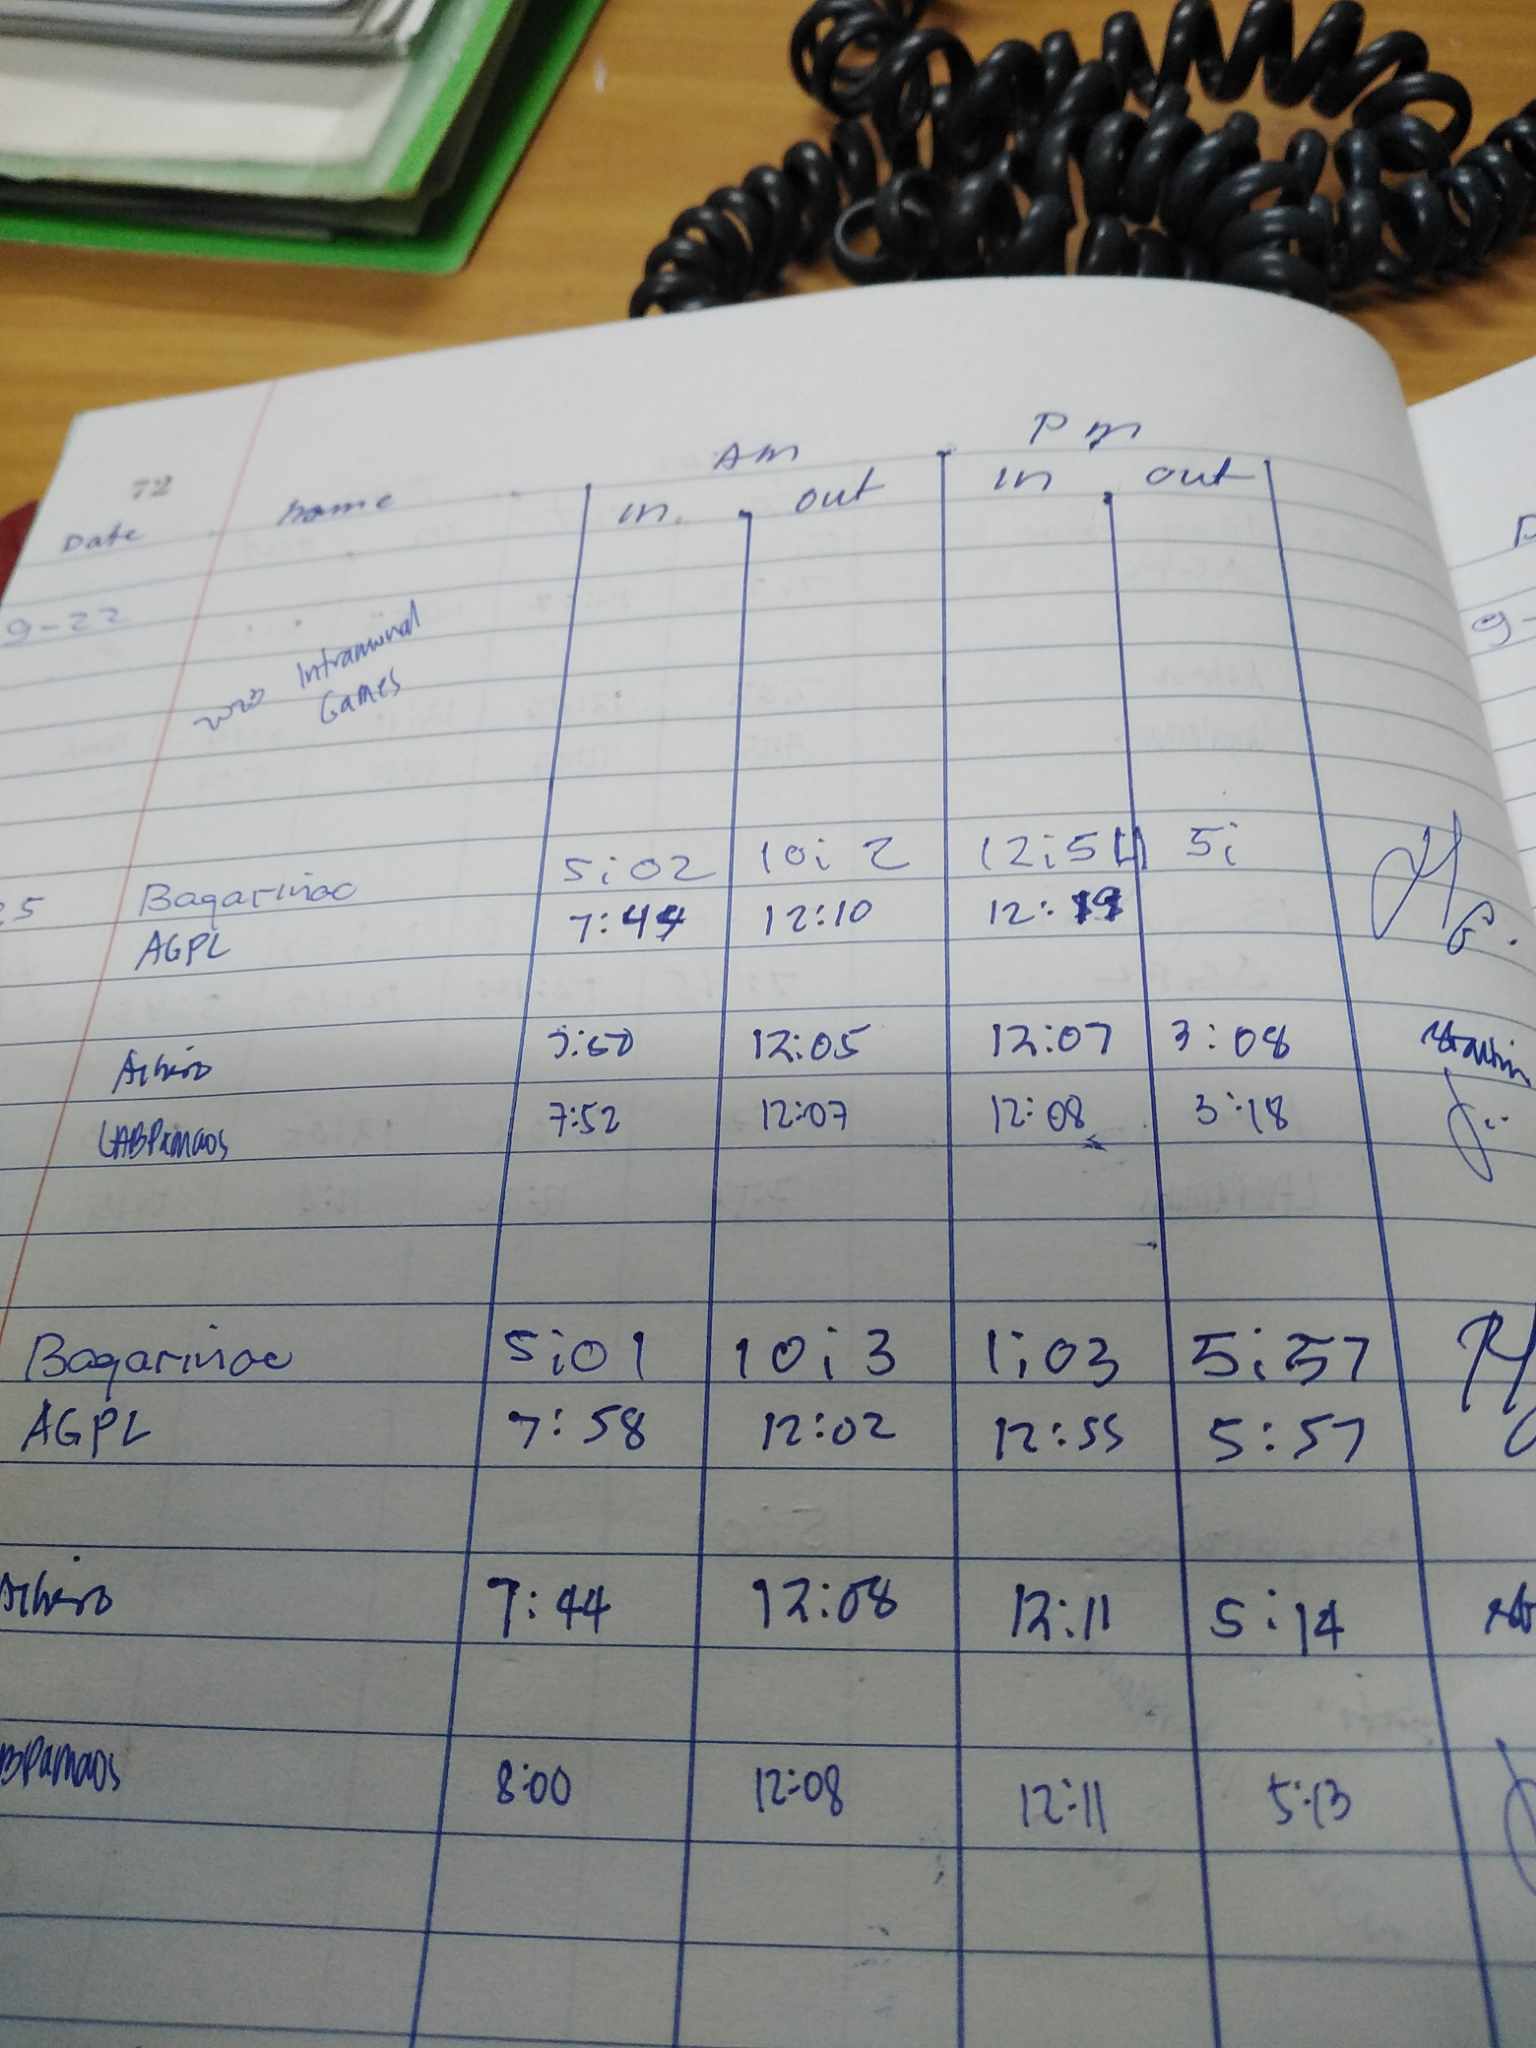 72
Am Pm
Date name in out in out
9-22
Intramural
Games
25 Bagarinao 5:02 10:2 12:54 5:
AGPL 7:44 12:10 12:
12:05 12:07 3:08
LABPamaos 7:52 12:07 12:08 3:18
Bagarinao 5:01 10:3 1:03 5:57
AGPL 7:58 12:02 12:55 5:57
7:44 12:08 12:11 5:14
BPamaos 8:00 12:08 12:11 5:13
9-